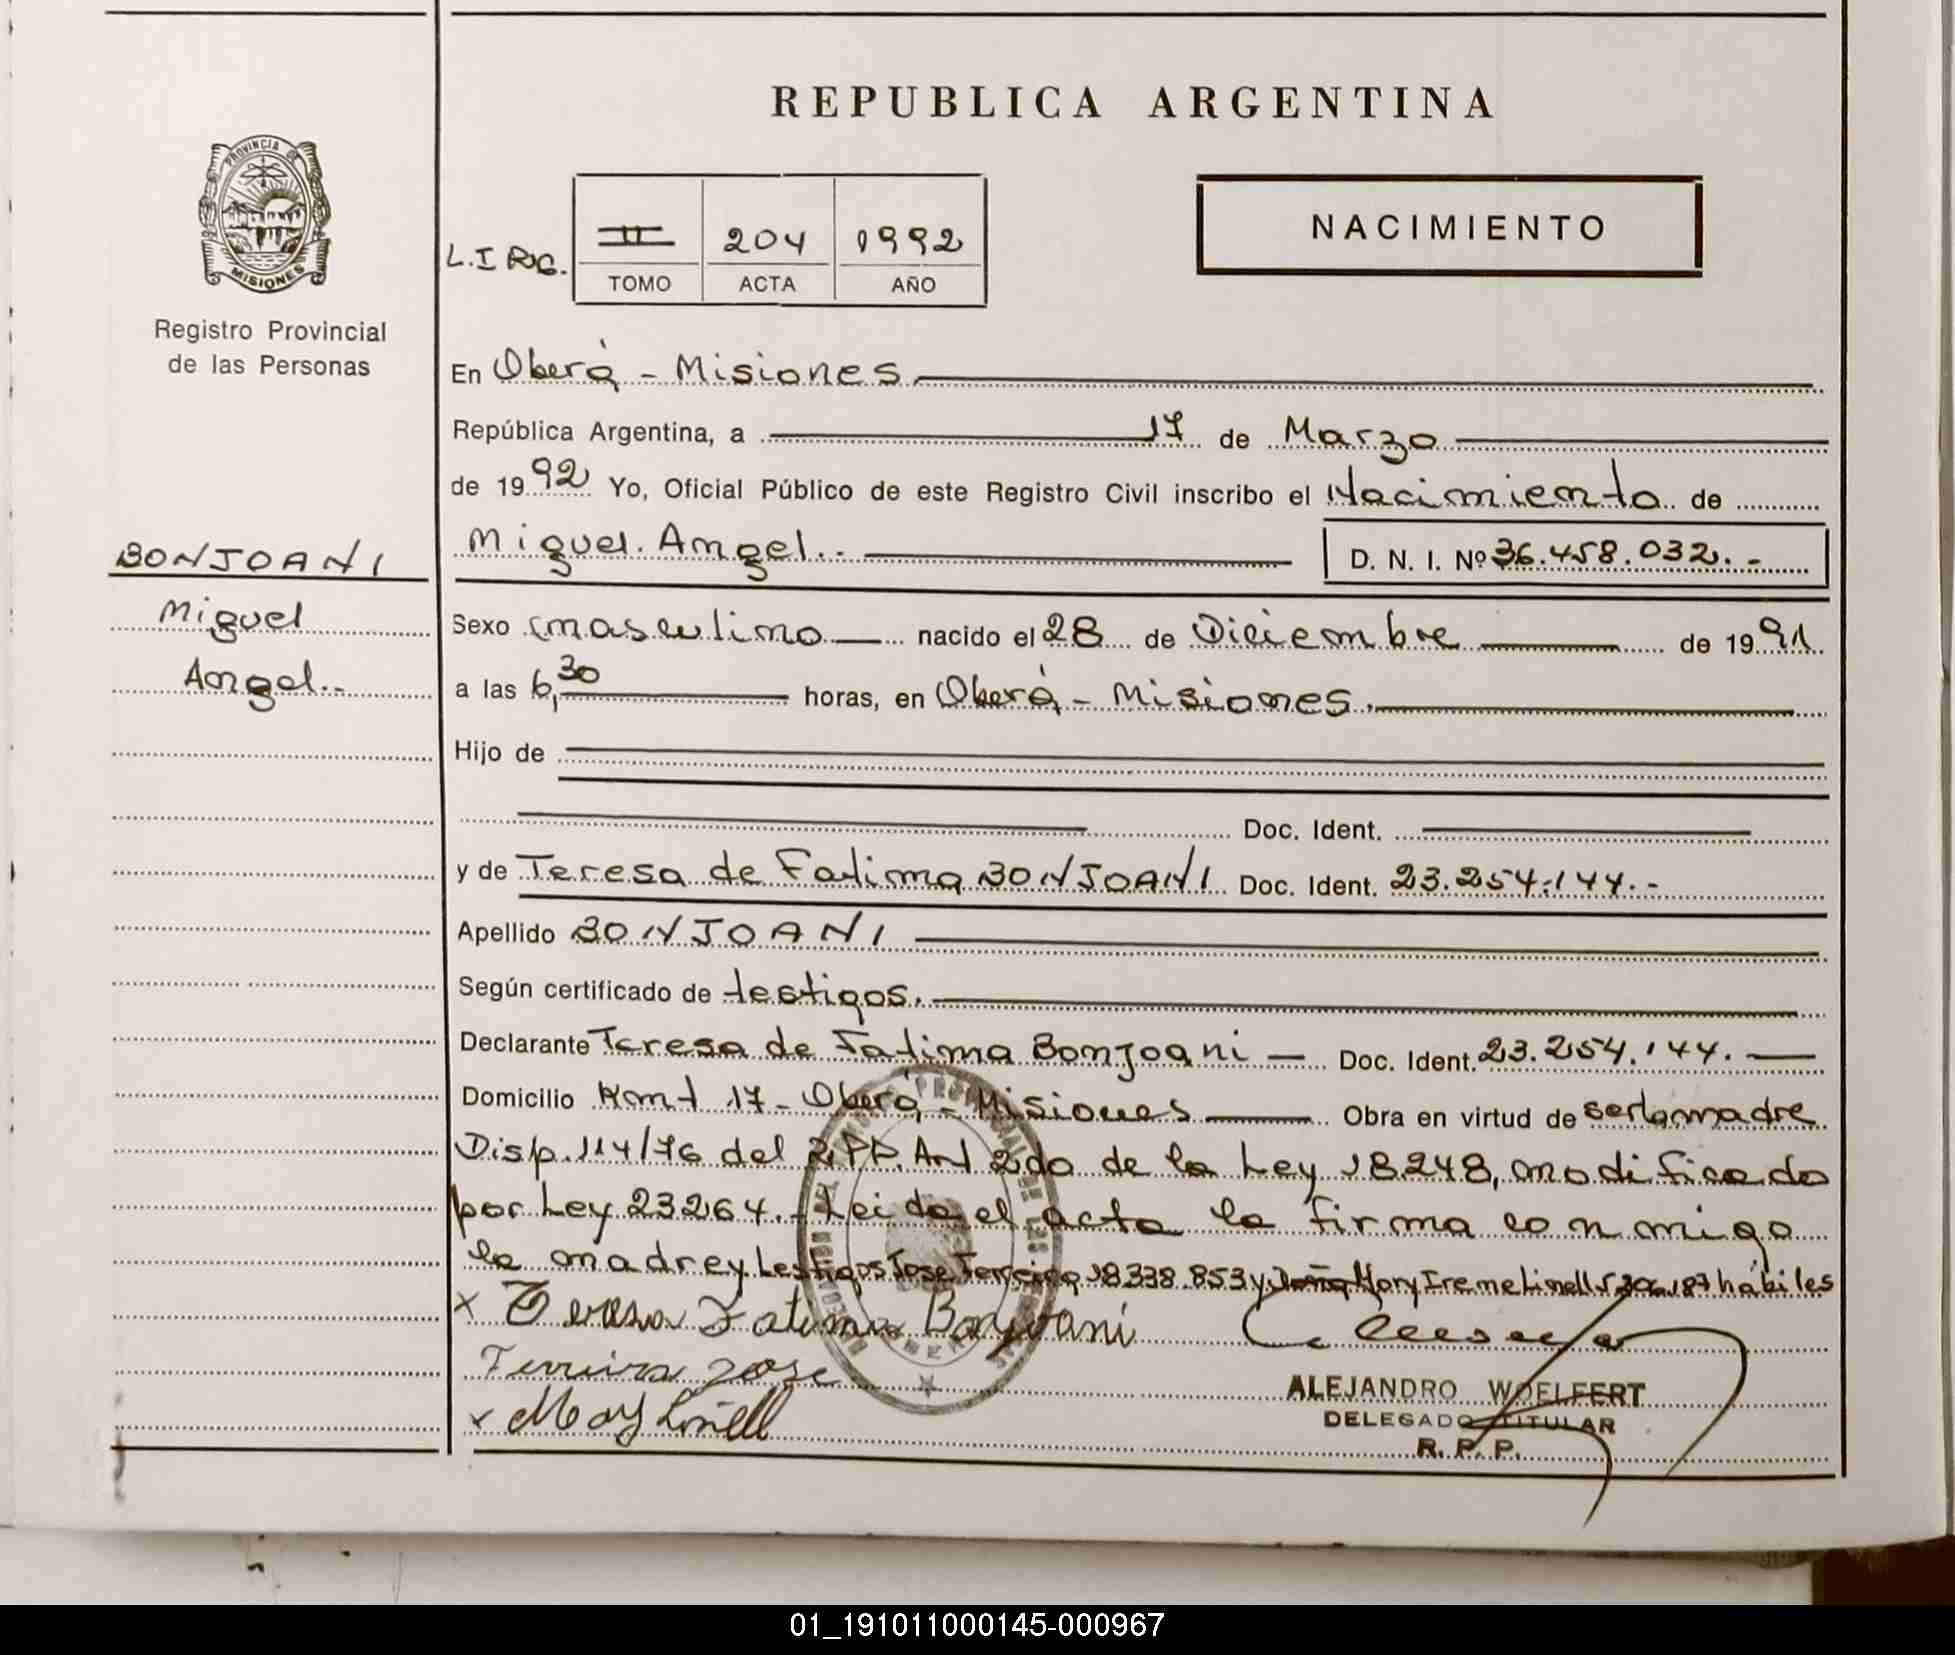 REPUBLICA ARGENTINA
PROVINCIA DE
MISIONES
Registro Provincial
de las Personas
L.I RG.
II 204 1992
TOMO ACTA AÑO
NACIMIENTO
En Oberá - Misiones.
República Argentina, a 17 de Marzo
de 1992 Yo, Oficial Público de este Registro Civil inscribo el Nacimiento de
BONJOANI
Miguel
Angel.-
Miguel Angel.- D. N. I. Nº 36.458.032.-
Sexo masculino nacido el 28 de Diciembre de 1991
a las 6,30 horas, en Oberá - Misiones.
Hijo de
Doc. Ident.
y de Teresa de Fatima BONJOANI Doc. Ident. 23.254.144.-
Apellido BONJOANI
Según certificado de testigos.
Declarante Teresa de Fatima Bonjoani — Doc. Ident. 23.254.144.—
Domicilio Kmt 17 - Oberá - Misiones Obra en virtud de ser la madre
Disp. 114/76 del 2do de la Ley 18248, modificado
por Ley 23264.- Leida el acta la firma conmigo
la madre y testigos Jose Ferreira 18338.853 y Mary Irene Linell hábiles
x Teresa Fatima Bonjoani
Ferreira Jose
x Mary Linell
ALEJANDRO WOELFERT
DELEGADO TITULAR
R. P. P.
01_191011000145-000967